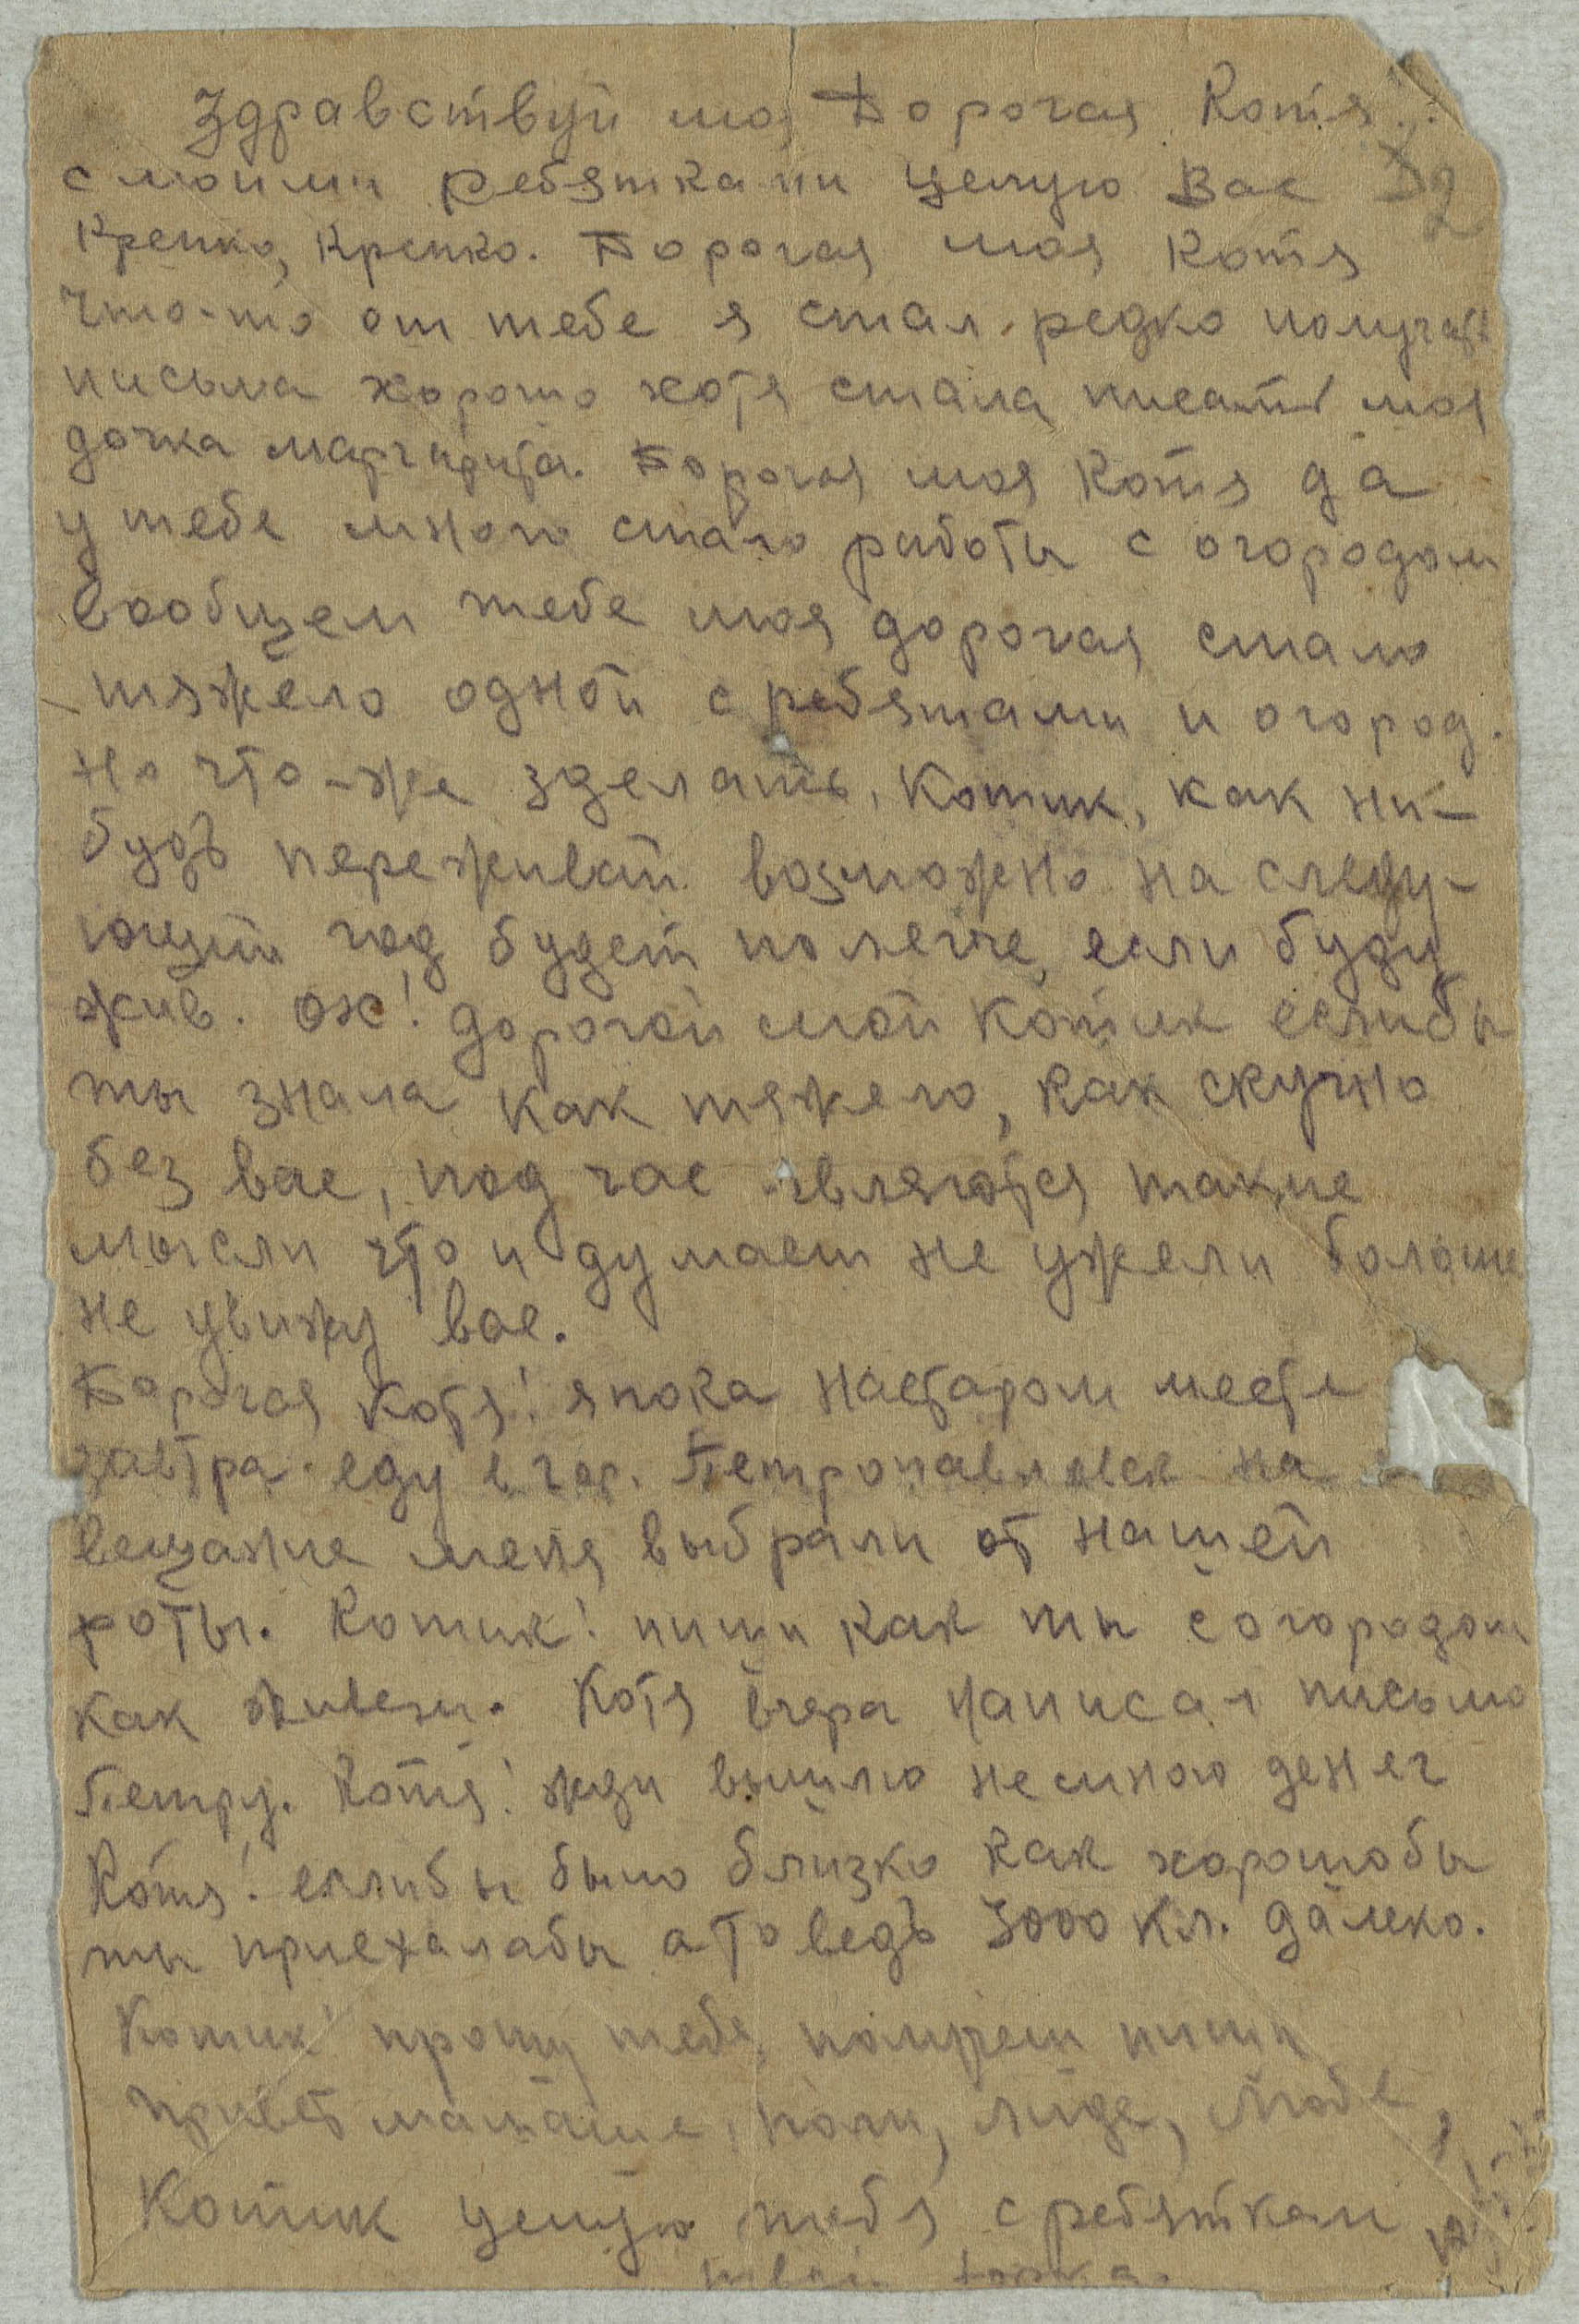 Здравствуй моя Дорогая Котя!
с моими ребятками целую Вас
Крепко, Крепко. Дорогая моя Котя
Что-то от тебе я стал редко получать
письма хорошо хотя стала писать моя
дочка Маргарита. Дорогая моя Котя да
у тебе много стало работы с огородом
Вообщем тебе моя дорогая стало
тяжело одной с ребятами и огород.
Но что-же зделать, Котик, как ни-
будь переживай возможно на следу-
ющий год будет полегче если буду
жив. Ох! дорогой мой Котик еслибы
ты знала как тяжело, как скучно
без вас, под час являются такие
мысли что и думаеш не ужели больше
не увижу вас.
Дорогая Котя! я пока на старом месте
завтра еду в гор. Петропавловск на
вещание меня выбрали от нашей
роты. Котик! пиши как ты с огородом
как живеш. Котя вчера написал письмо
Петру. Котя! жди вышлю немного денег
Котя! еслибы было близко как хорошобы
ты приехалабы а то ведь 3000 кл. далеко.
Котик! прошу тебя, получеш пиши
привет мамаше, Поли, Лиде, Любе,
Котик целую тебя с ребятками
твой